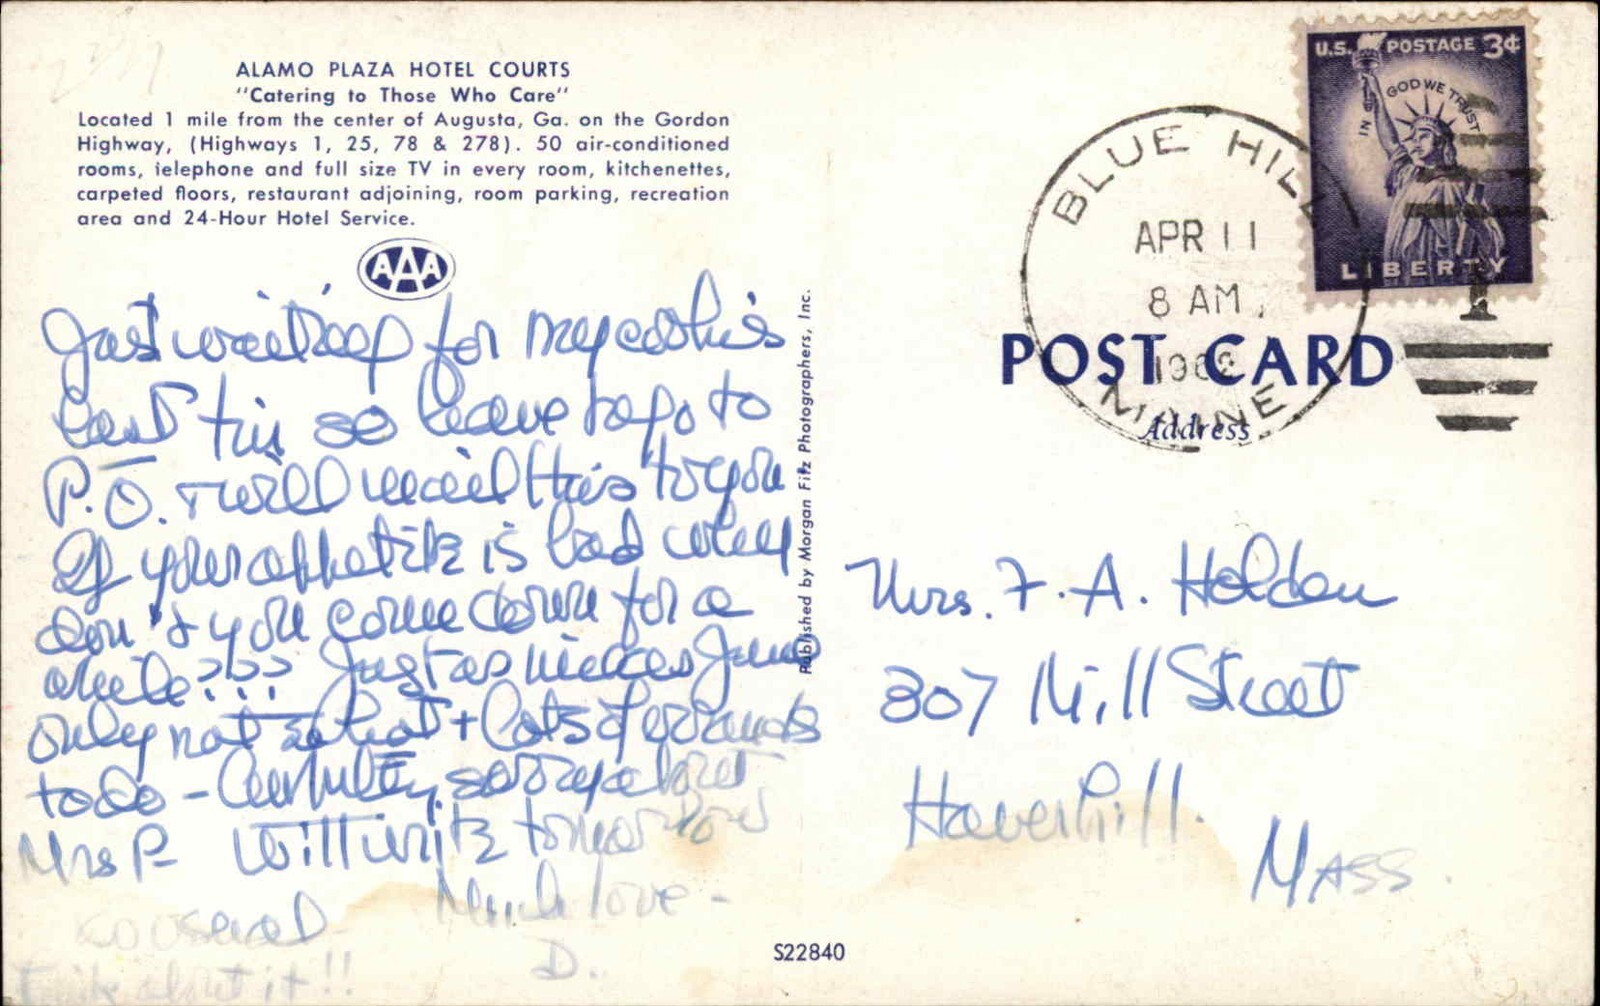 ALAMO PLAZA HOTEL COURTS
"Catering to Those Who Care"
Located 1 mile from the center of Augusta, Ga. on the Gordon
Highway, (Highways 1, 25, 78 & 278). 50 air-conditioned
rooms, telephone and full size TV in every room, kitchenettes,
carpeted floors, restaurant adjoining, room parking, recreation
area and 24-Hour Hotel Service.
AAA
Just waiting for my cookies
last tin so have to go to
P.O. & will mail this to you
If your appetite is bad why
don't you come down for a
while??? Just as nice as June
only not so hot + lots of errands
to do - Awfully sorry about
Mrs P- Will write tomorrow
Much love -
D.
about it!!
Published by Morgan Fitz Photographers, Inc.
S22840
U.S. POSTAGE 3¢
IN GOD WE TRUST
LIBERTY
BLUE HILL
APR 11
8 AM
1962
MAINE
POST CARD
Address
Mrs. F. A. Holden
307 Mill Street
Haverhill
MASS